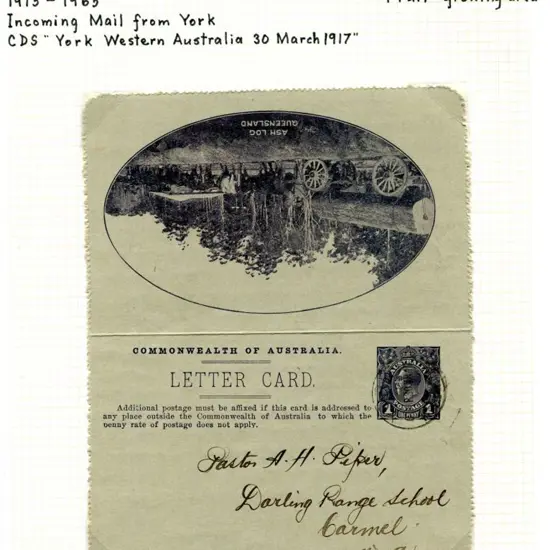 1913 - 1965
Fruit growing area
Incoming Mail from York
CDS "York Western Australia 30 March 1917"
ASH LOG
QUEENSLAND
COMMONWEALTH OF AUSTRALIA.
LETTER CARD.
Additional postage must be affixed if this card is addressed to
any place outside the Commonwealth of Australia to which the
penny rate of postage does not apply.
POSTAGE
ONE PENNY
Pastor A. H. Piper,
Darling Range School
Carmel